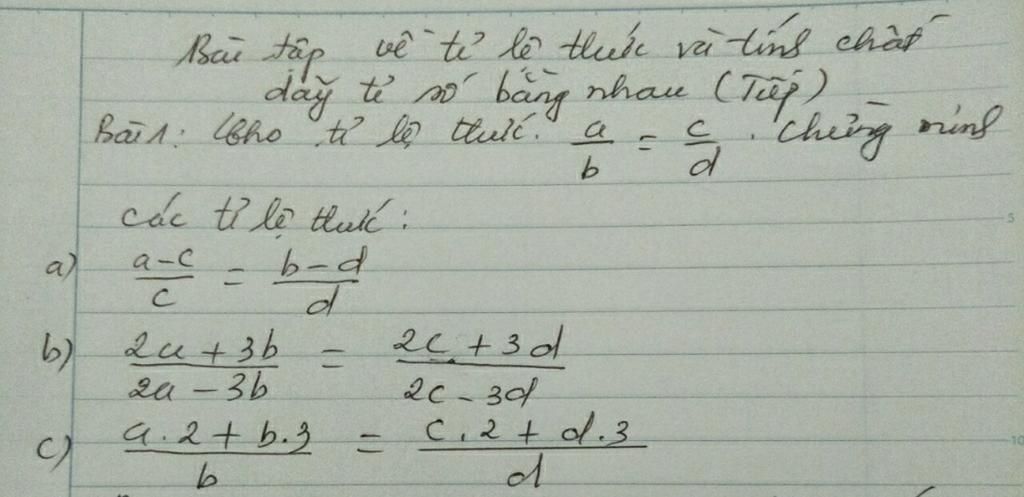 Bài tập về tỉ lệ thức và tính chất
dãy tỉ số bằng nhau (Tiếp)
Bài 1: Cho tỉ lệ thức. a/b = c/d. Chứng minh
các tỉ lệ thức:
a) (a-c)/c = (b-d)/d
b) (2a+3b)/(2a-3b) = (2c+3d)/(2c-3d)
c) (a.2+b.3)/b = (c.2+d.3)/d